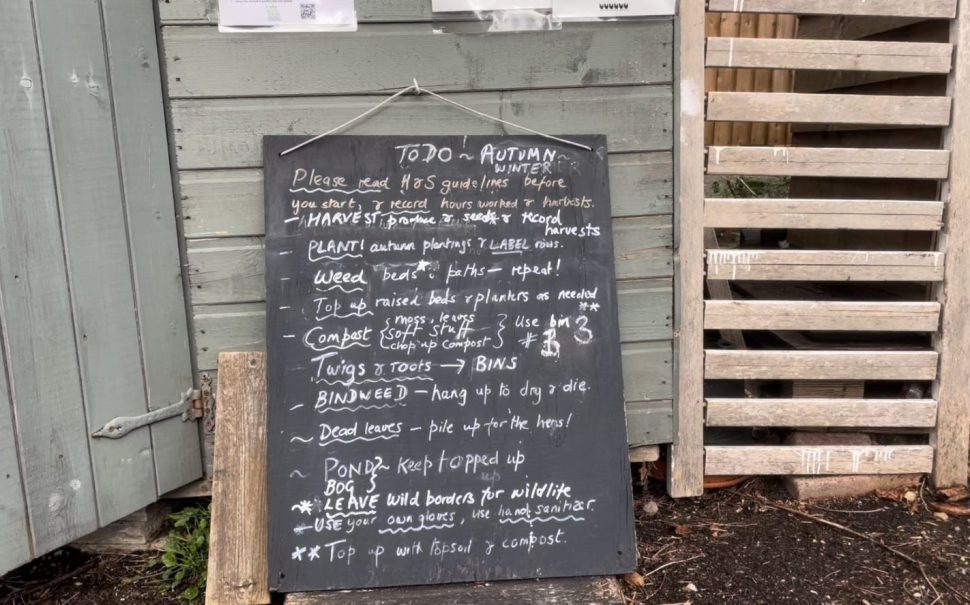 TODO ~ AUTUMN ~
WINTER
Please read H&S guidelines before
you start, & record hours worked & harvests.
- HARVEST produce & seeds & record
harvests
- PLANT! autumn plantings & LABEL rows.
- Weed beds* & paths - repeat!
- Top up raised beds & planters as needed
**
- Compost { moss, leaves } Use bin
soft stuff # 3
chop up compost
Twigs & roots → BINS
- BINDWEED - hang up to dry & die.
~ Dead leaves - pile up for the hens!
~ POND } ~ Keep topped up
BOG }
~* LEAVE wild borders for wildlife
- USE your own gloves, use hand sanitizer.
** Top up with topsoil & compost.